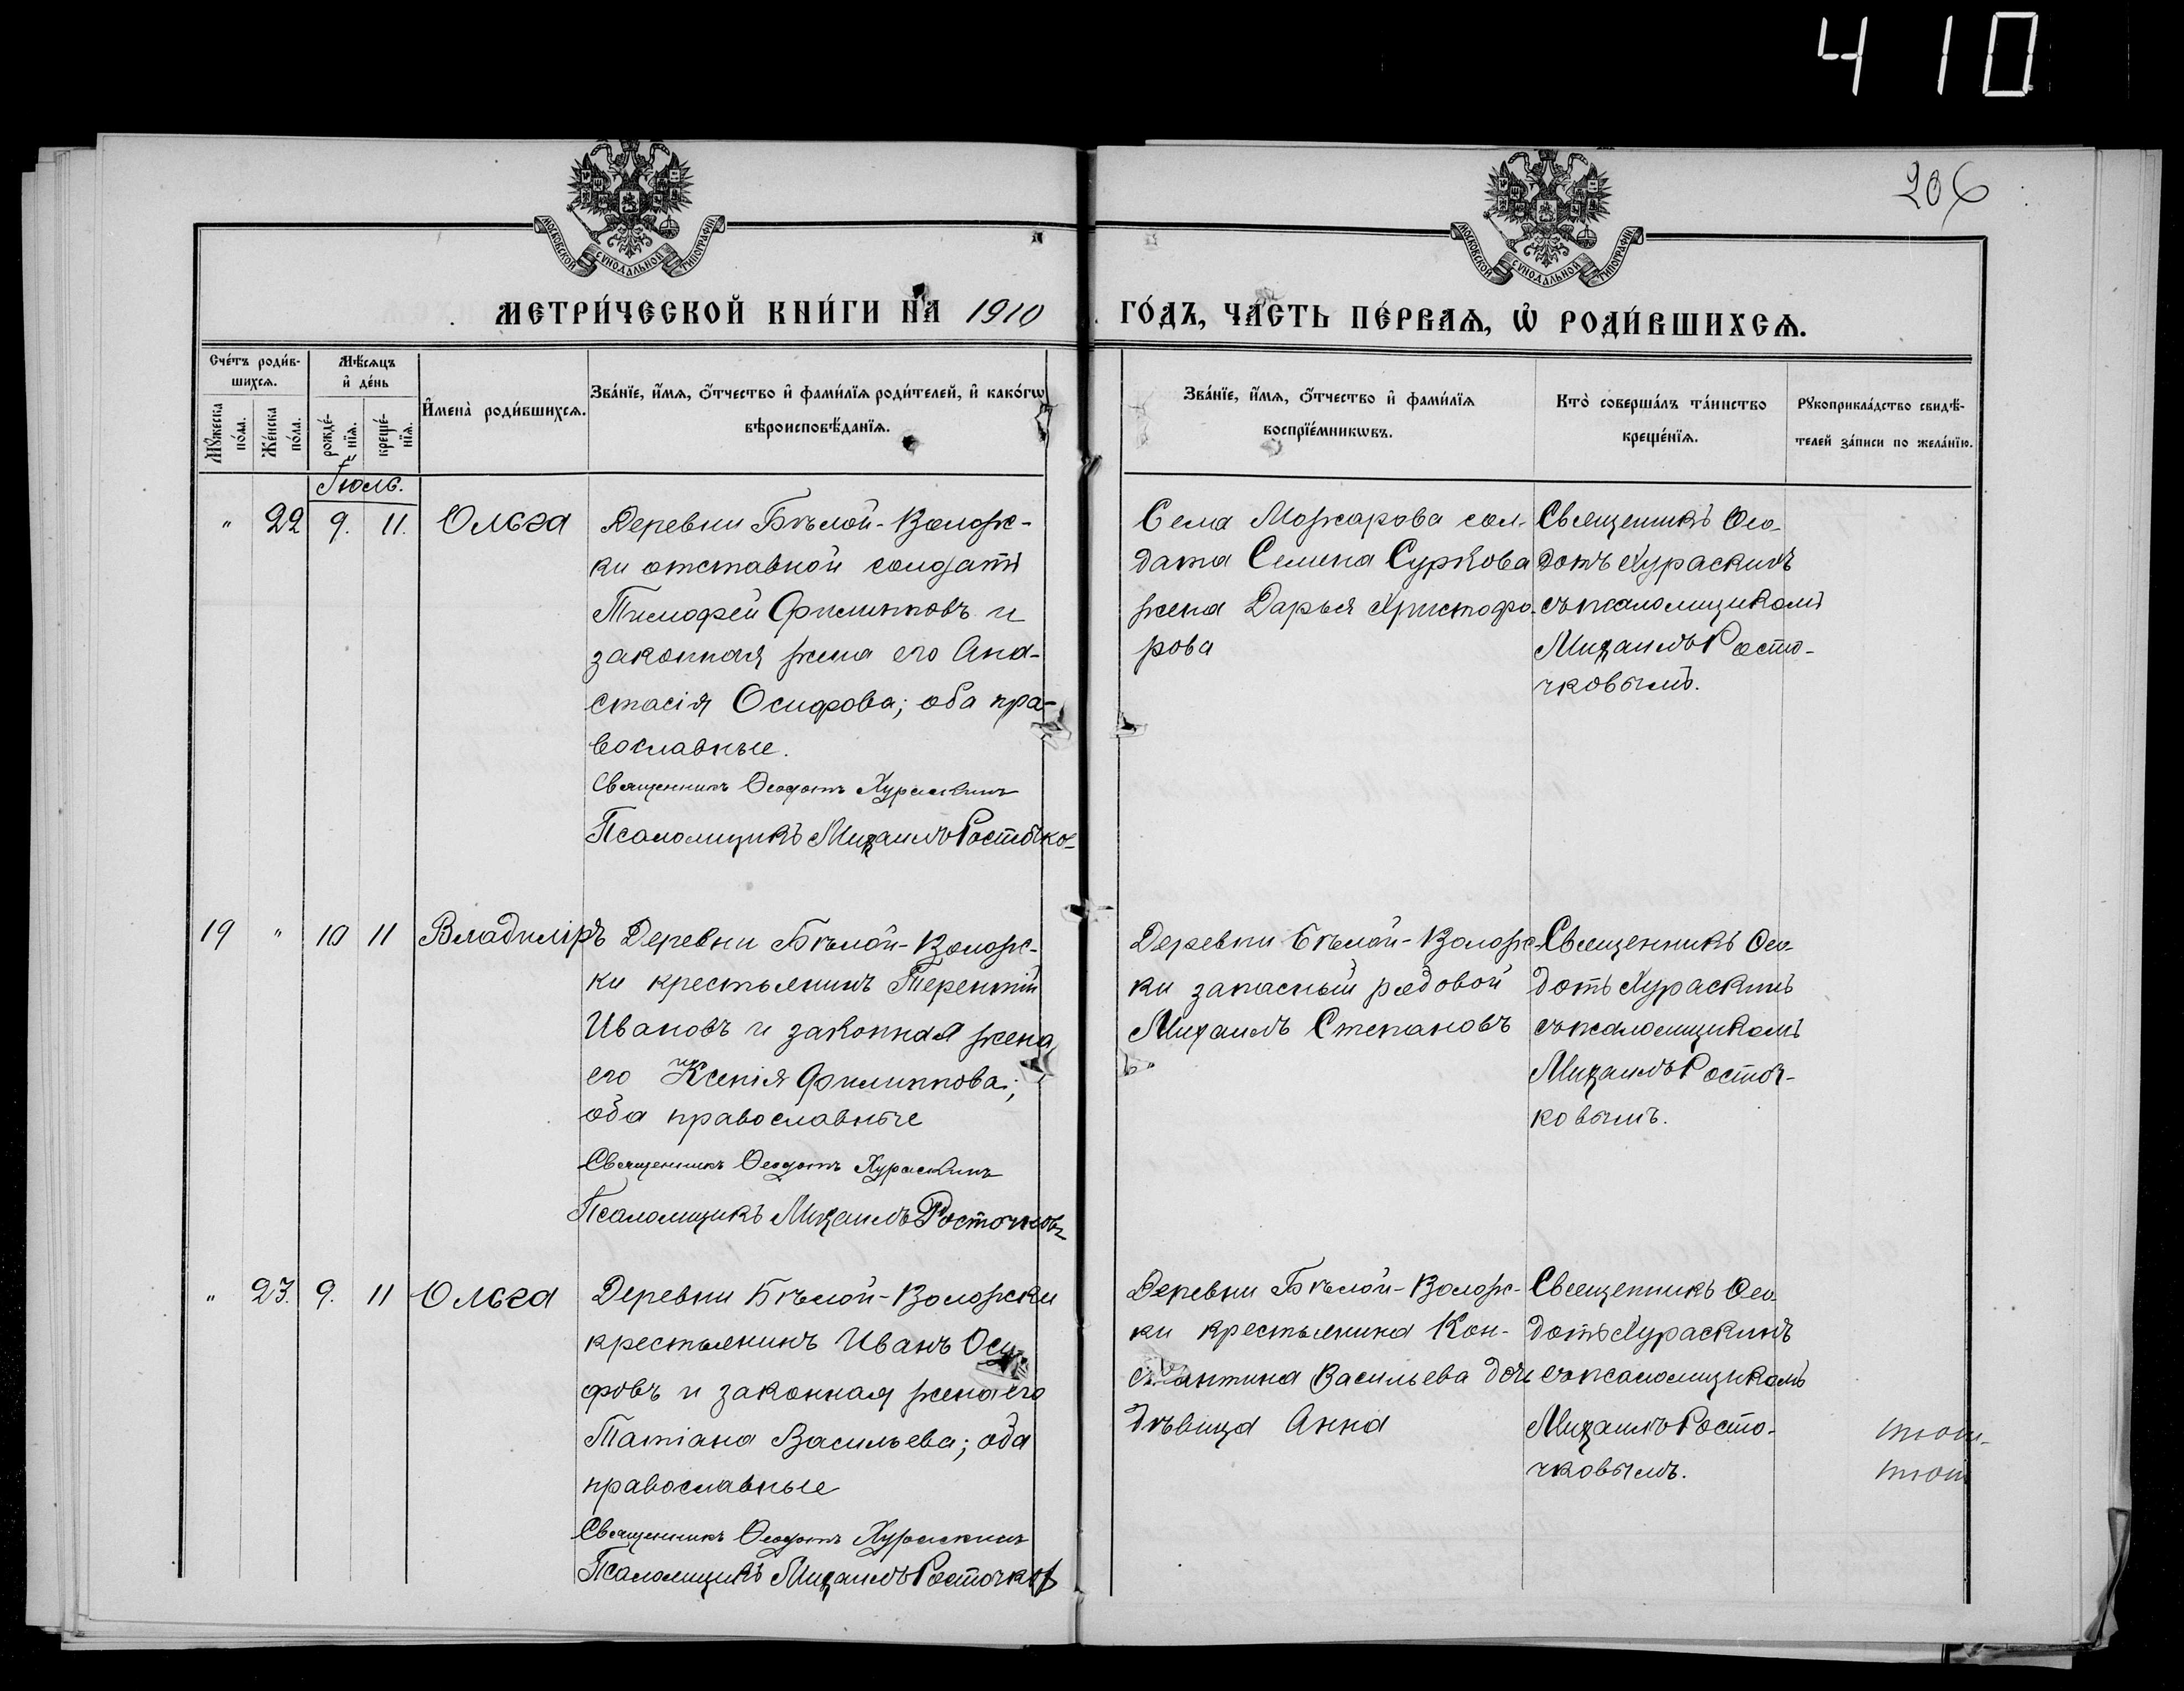 410
206
МОСКОВСКОЙ СУНОДАЛЬНОЙ ТИПОГРАФІИ
МОСКОВСКОЙ СУНОДАЛЬНОЙ ТИПОГРАФІИ
МЕТРИ́ЧЕСКОЙ КНИ́ГИ НА 1910
ГО́ДЪ, ЧА́СТЬ ПЕ́РВАѦ, Ѡ҆ РОДИ́ВШИХСѦ.
Сче́тъ роди́в-
шихсѧ.
Мꙋ́жеска
по́ла.
Же́нска
по́ла.
Мѣ́сѧцъ
и҆ де́нь
рожде́-
нїѧ.
креще́-
нїѧ.
И҆мена̀ роди́вшихсѧ.
Зва́нїе, и҆́мѧ, ѻ҆́тчество и҆ фами́лїѧ роди́телей, и҆ како́гѡ
вѣроисповѣ́данїѧ.
Зва́нїе, и҆́мѧ, ѻ҆́тчество и҆ фами́лїѧ
воспрїе́мникѡвъ.
Кто̀ соверша́лъ та́инство
креще́нїѧ.
Рꙋкоприкла́дство свидѣ́-
телей за́писи по жела́нїю.
Іюль.
" 22 9. 11. Ольга
Деревни Бѣлой-Волож-
ки отставной солдатъ
Тимофей Филипповъ и
законная жена его Ана-
стасія Осифова; оба пра-
вославные.
Священникъ Ѳеодотъ Хураскинъ
Псаломщикъ Михаилъ Росточко-
Села Можарова сол-
дата Семена Суркова
жена Дарья Христофо-
рова
Священникъ Ѳео-
дотъ Хураскинъ
съ псаломщикомъ
Михаилъ Росто-
чковымъ.
19 " 10 11 Владиміръ
Деревни Бѣлой-Волож-
ки крестьянинъ Терентій
Ивановъ и законная жена
его Ксенія Филиппова;
оба православные
Священникъ Ѳеодотъ Хураскинъ
Псаломщикъ Михаилъ Росточковъ
Деревни Бѣлой-Волож-
ки запасный рядовой
Михаилъ Степановъ
Священникъ Ѳео-
дотъ Хураскинъ
съ псаломщикомъ
Михаилъ Росточ-
ковымъ.
" 23. 9. 11 Ольга
Деревни Бѣлой-Воложки
крестьянинъ Иванъ Оси-
фовъ и законная жена его
Татіана Васильева; оба
православные
Священникъ Ѳеодотъ Хураскинъ
Псаломщикъ Михаилъ Росточков
Деревни Бѣлой-Волож-
ки крестьянина Кон-
стантина Васильева дочь
дѣвица Анна
Священникъ Ѳео-
дотъ Хураскинъ
съ псаломщикомъ
Михаилъ Росто-
чковымъ.